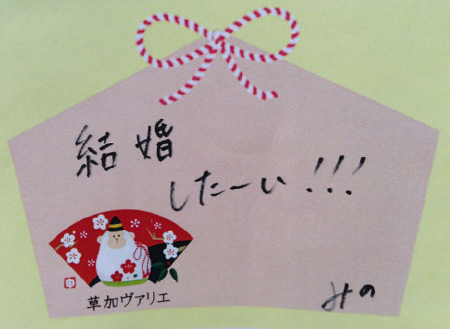 結婚
したーい!!!
みの
申
草加ヴァリエ